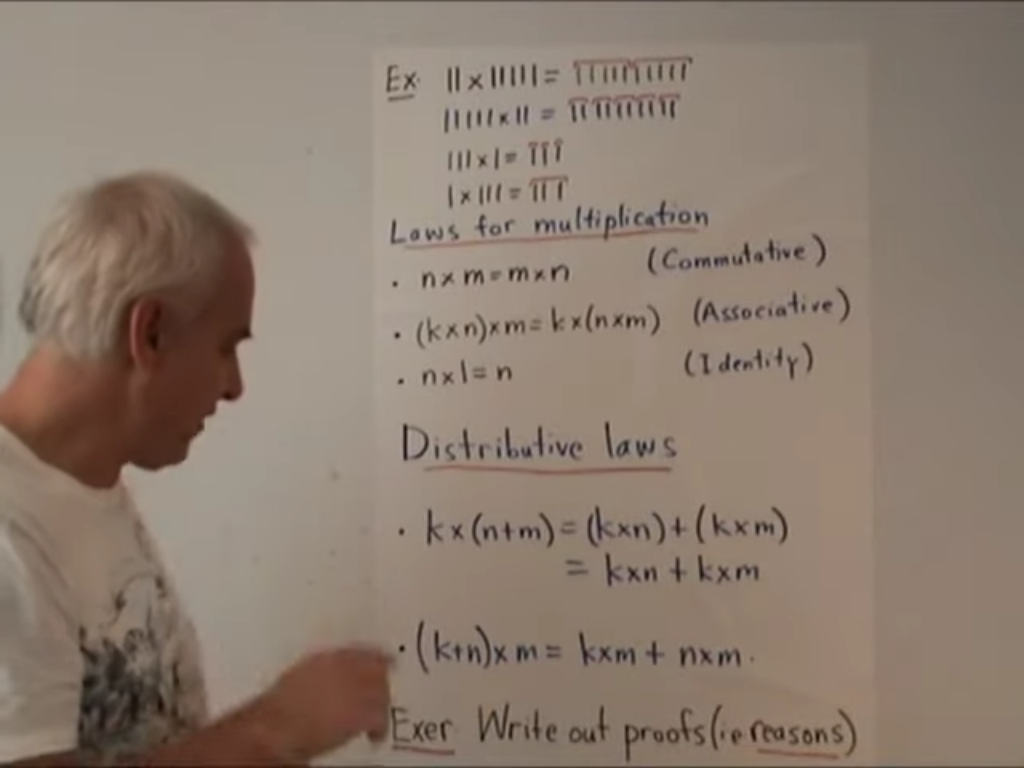 Ex. || x ||||| = ||||||||||
||||| x || = ||||||||||
||| x | = |||
| x ||| = |||
Laws for multiplication
• n x m = m x n (Commutative)
• (k x n) x m = k x (n x m) (Associative)
• n x 1 = n (Identity)
Distributive laws
• k x (n+m) = (k x n) + (k x m)
= k x n + k x m
• (k+n) x m = k x m + n x m.
Exer Write out proofs (ie reasons)